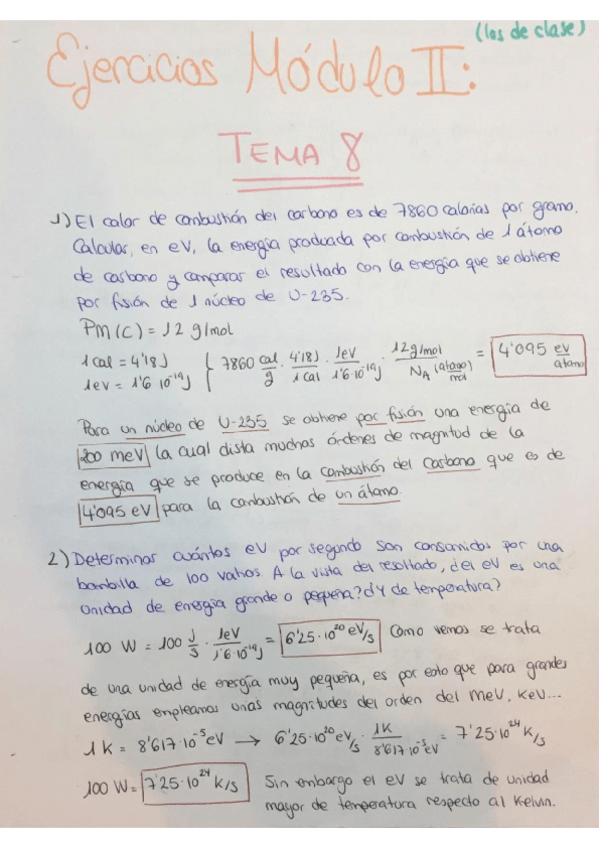 (los de clase)
Ejercicios Módulo II:
TEMA 8
1) El calor de combustión del carbono es de 7860 calorías por gramo.
Calcular, en eV, la energía producida por combustión de 1 átomo
de carbono y comparar el resultado con la energía que se obtiene
por fisión de 1 núcleo de U-235.
PM(C) = 12 g/mol
1 cal = 4'18 J
1 eV = 1'6·10^-19 J
{ 7860 cal/g · 4'18 J/1 cal · 1eV/1'6·10^-19 J · 12 g/mol / N_A (átomo/mol) = 4'095 eV/átomo
Para un núcleo de U-235 se obtiene por fisión una energía de
200 meV la cual dista muchos órdenes de magnitud de la
energía que se produce en la combustión del carbono que es de
4'095 eV para la combustión de un átomo.
2) Determinar cuántos eV por segundo son consumidos por una
bombilla de 100 vatios. A la vista del resultado, ¿el eV es una
unidad de energía grande o pequeña? ¿Y de temperatura?
100 W = 100 J/s · 1eV/1'6·10^-19 J = 6'25·10^20 eV/s Como vemos se trata
de una unidad de energía muy pequeña, es por esto que para grandes
energías empleamos unas magnitudes del orden del MeV, KeV...
1 K = 8'617·10^-5 eV → 6'25·10^20 eV/s · 1K/8'617·10^-5 eV = 7'25·10^24 K/s
100 W = 7'25·10^24 K/s Sin embargo el eV se trata de unidad
mayor de temperatura respecto al Kelvin.